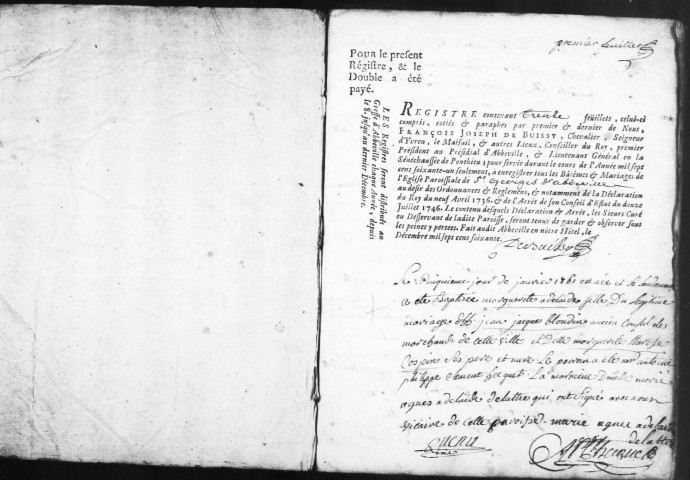 premier feuillet
POUR le present
Régistre, & le
Double a été
payé.
LES Regîstres seront distribués au
Greffe d'Abbeville chaque Année, depuis
le 8. jusqu'au dernier Décembre.
REGISTRE contenant trente feüillets, celui-ci
compris, cottés & paraphés par premier & dernier de Nous,
FRANÇOIS JOSEPH DE BUISSY, Chevalier, Seigneur
d'Yvren, le Maisnil, & autres Lieux, Conseiller du Roy, premier
Président au Présidial d'Abbeville, & Lieutenant Général en la
Sénéchaussée de Ponthieu; pour servir durant le cours de l'Année mil sept
cens soixante-un seulement, a enregistrer tous les Bâtêmes & Mariages de
l'Eglise Paroissiale de St Georges d'abbeville
au desir des Ordonnances & Reglemens, & notamment de la Déclaration
du Roy du neuf Avril 1736. & de l'Arrêt de son Conseil d'Estat du douze
Juillet 1746. Le contenu desquels Déclaration & Arrêt, les Sieurs Curé
ou Desservant de ladite Paroisse, seront tenus de garder & observer sous
les peines y portées. Fait audit Abbeville en nôtre Hôtel, le
Décembre mil sept cens soixante.
De Buissy
Le Cinquieme jour de janvier 1761 est née et le lendemain
a eté baptisée marguerite adelaide fille Du legitime
mariage de jean jacques blondin ancien Consul des
marchands de cette ville et Delle marguerite therese
ses pere et mere. Le parein a eté mr antoine
philippe Clement hecquet. La mareine Dmlle marie
agnes adelaide delattre qui ont signé avec nous
vicaire de cette paroisse. marie agnes adelaide
delattre